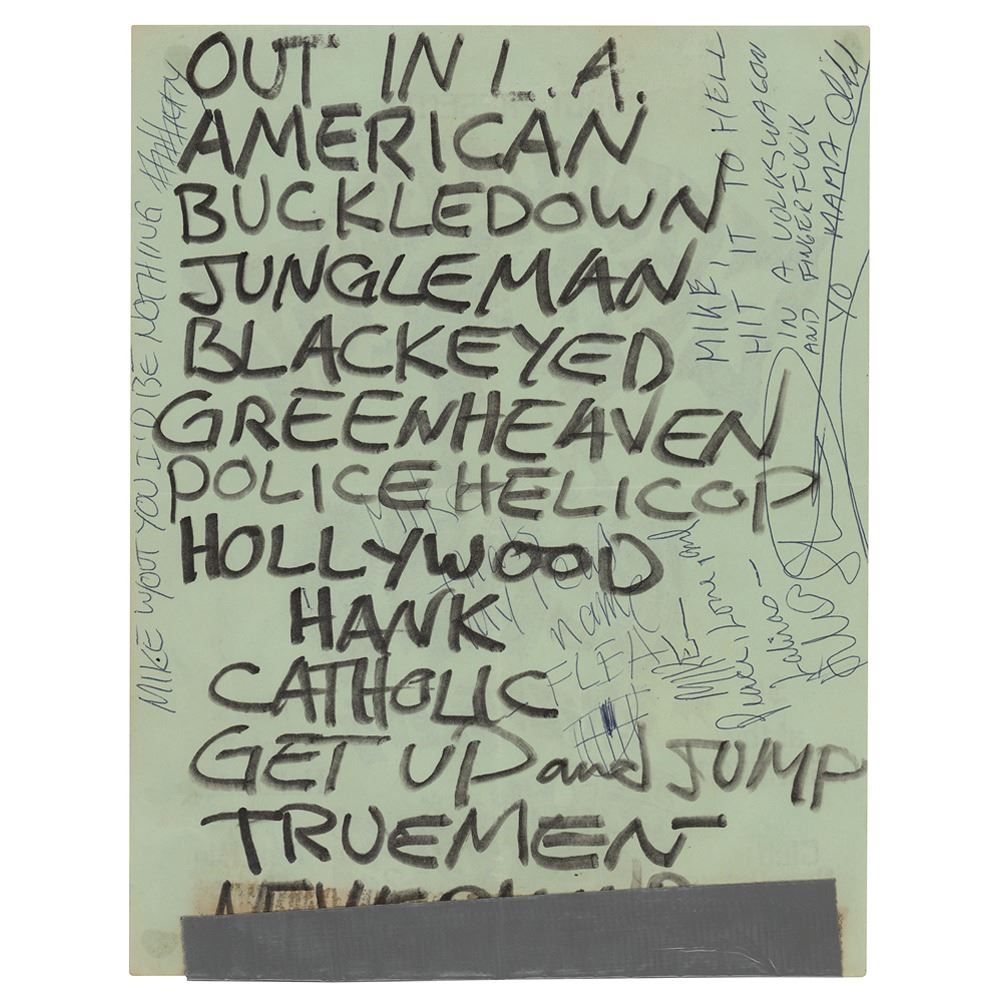 OUT IN L.A.
AMERICAN
BUCKLEDOWN
JUNGLEMAN
BLACKEYED
GREENHEAVEN
POLICE HELICOP
HOLLYWOOD
HANK
CATHOLIC
GET UP and JUMP
TRUEMEN
MIKE WOUT YOU I'D BE NOTHING
MIKE, HIT IT TO HELL
IN A VOLKSWAGON
AND FINGERFUCK
YO MAMA
name
FLEA
MIKE—